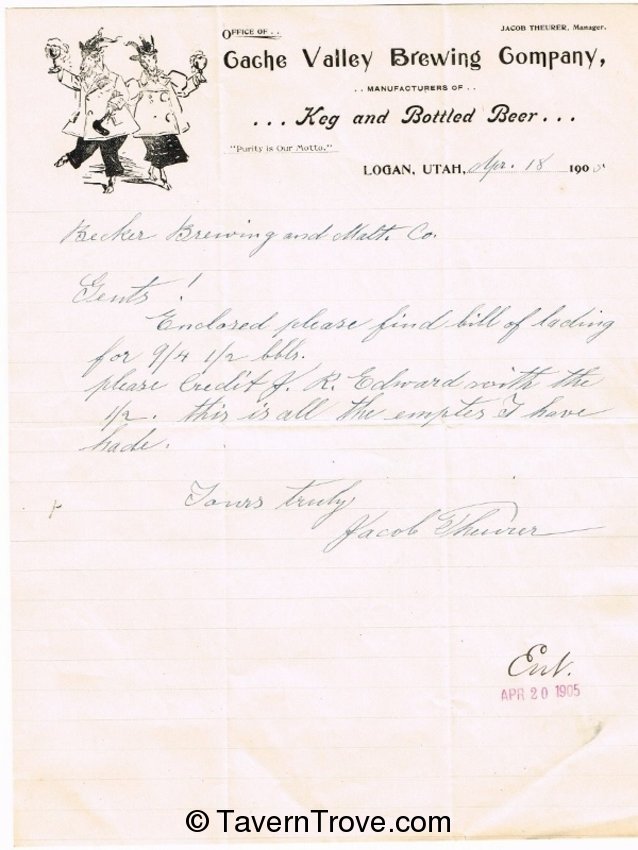 OFFICE OF . .
JACOB THEURER, Manager.
Cache Valley Brewing Company,
. . MANUFACTURERS OF . .
. . . Keg and Bottled Beer . . .
"Purity is Our Motto."
LOGAN, UTAH, Apr. 18 1905
Becker Brewing and Malt. Co.
Gents!
Enclosed please find bill of lading
for 9/4 1/2 bbls.
please Credit J. R. Edward with the
1/2. this is all the empties I have
hade.
Yours truly
Jacob Theurer
Ent.
APR 20 1905
© TavernTrove.com